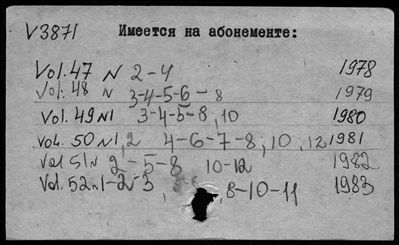 V3871 Имеется на абонементе:
Vol. 47 N 2-4 1978
Vol. 48 N 3-4-5-6-8 1979
Vol. 49 N1 3-4-5-8, 10 1980
Vol. 50 N1, 2 4-6-7-8, 10, 12 1981
Vol 51 N 2-5-8 10-12 1982
Vol. 52 N 1-2-3, 8-10-11 1983